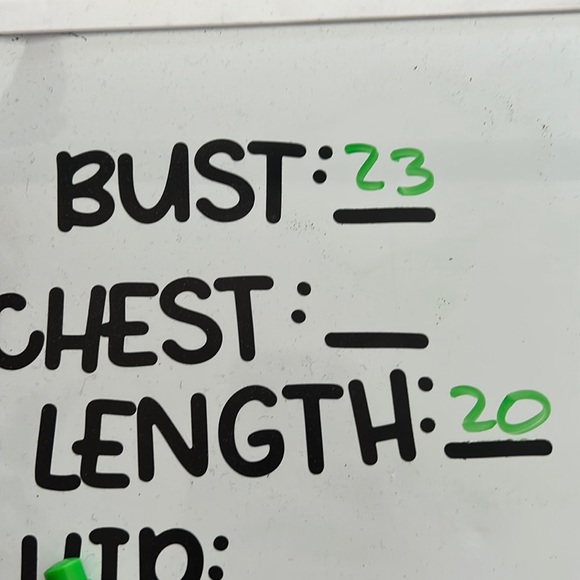 BUST: 23
CHEST:
LENGTH: 20
HIP: